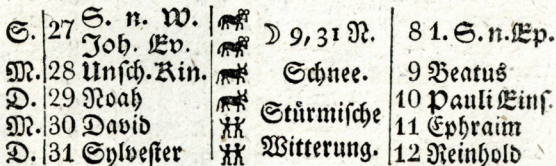 S. 27 S. n. W. Joh. Ev. ☽ 9, 31 N. 8 1. S. n. Ep.
M. 28 Unsch. Kin. Schnee. 9 Beatus
D. 29 Noah Stürmische 10 Pauli Eins.
M. 30 David Witterung. 11 Ephraim
D. 31 Sylvester 12 Reinhold